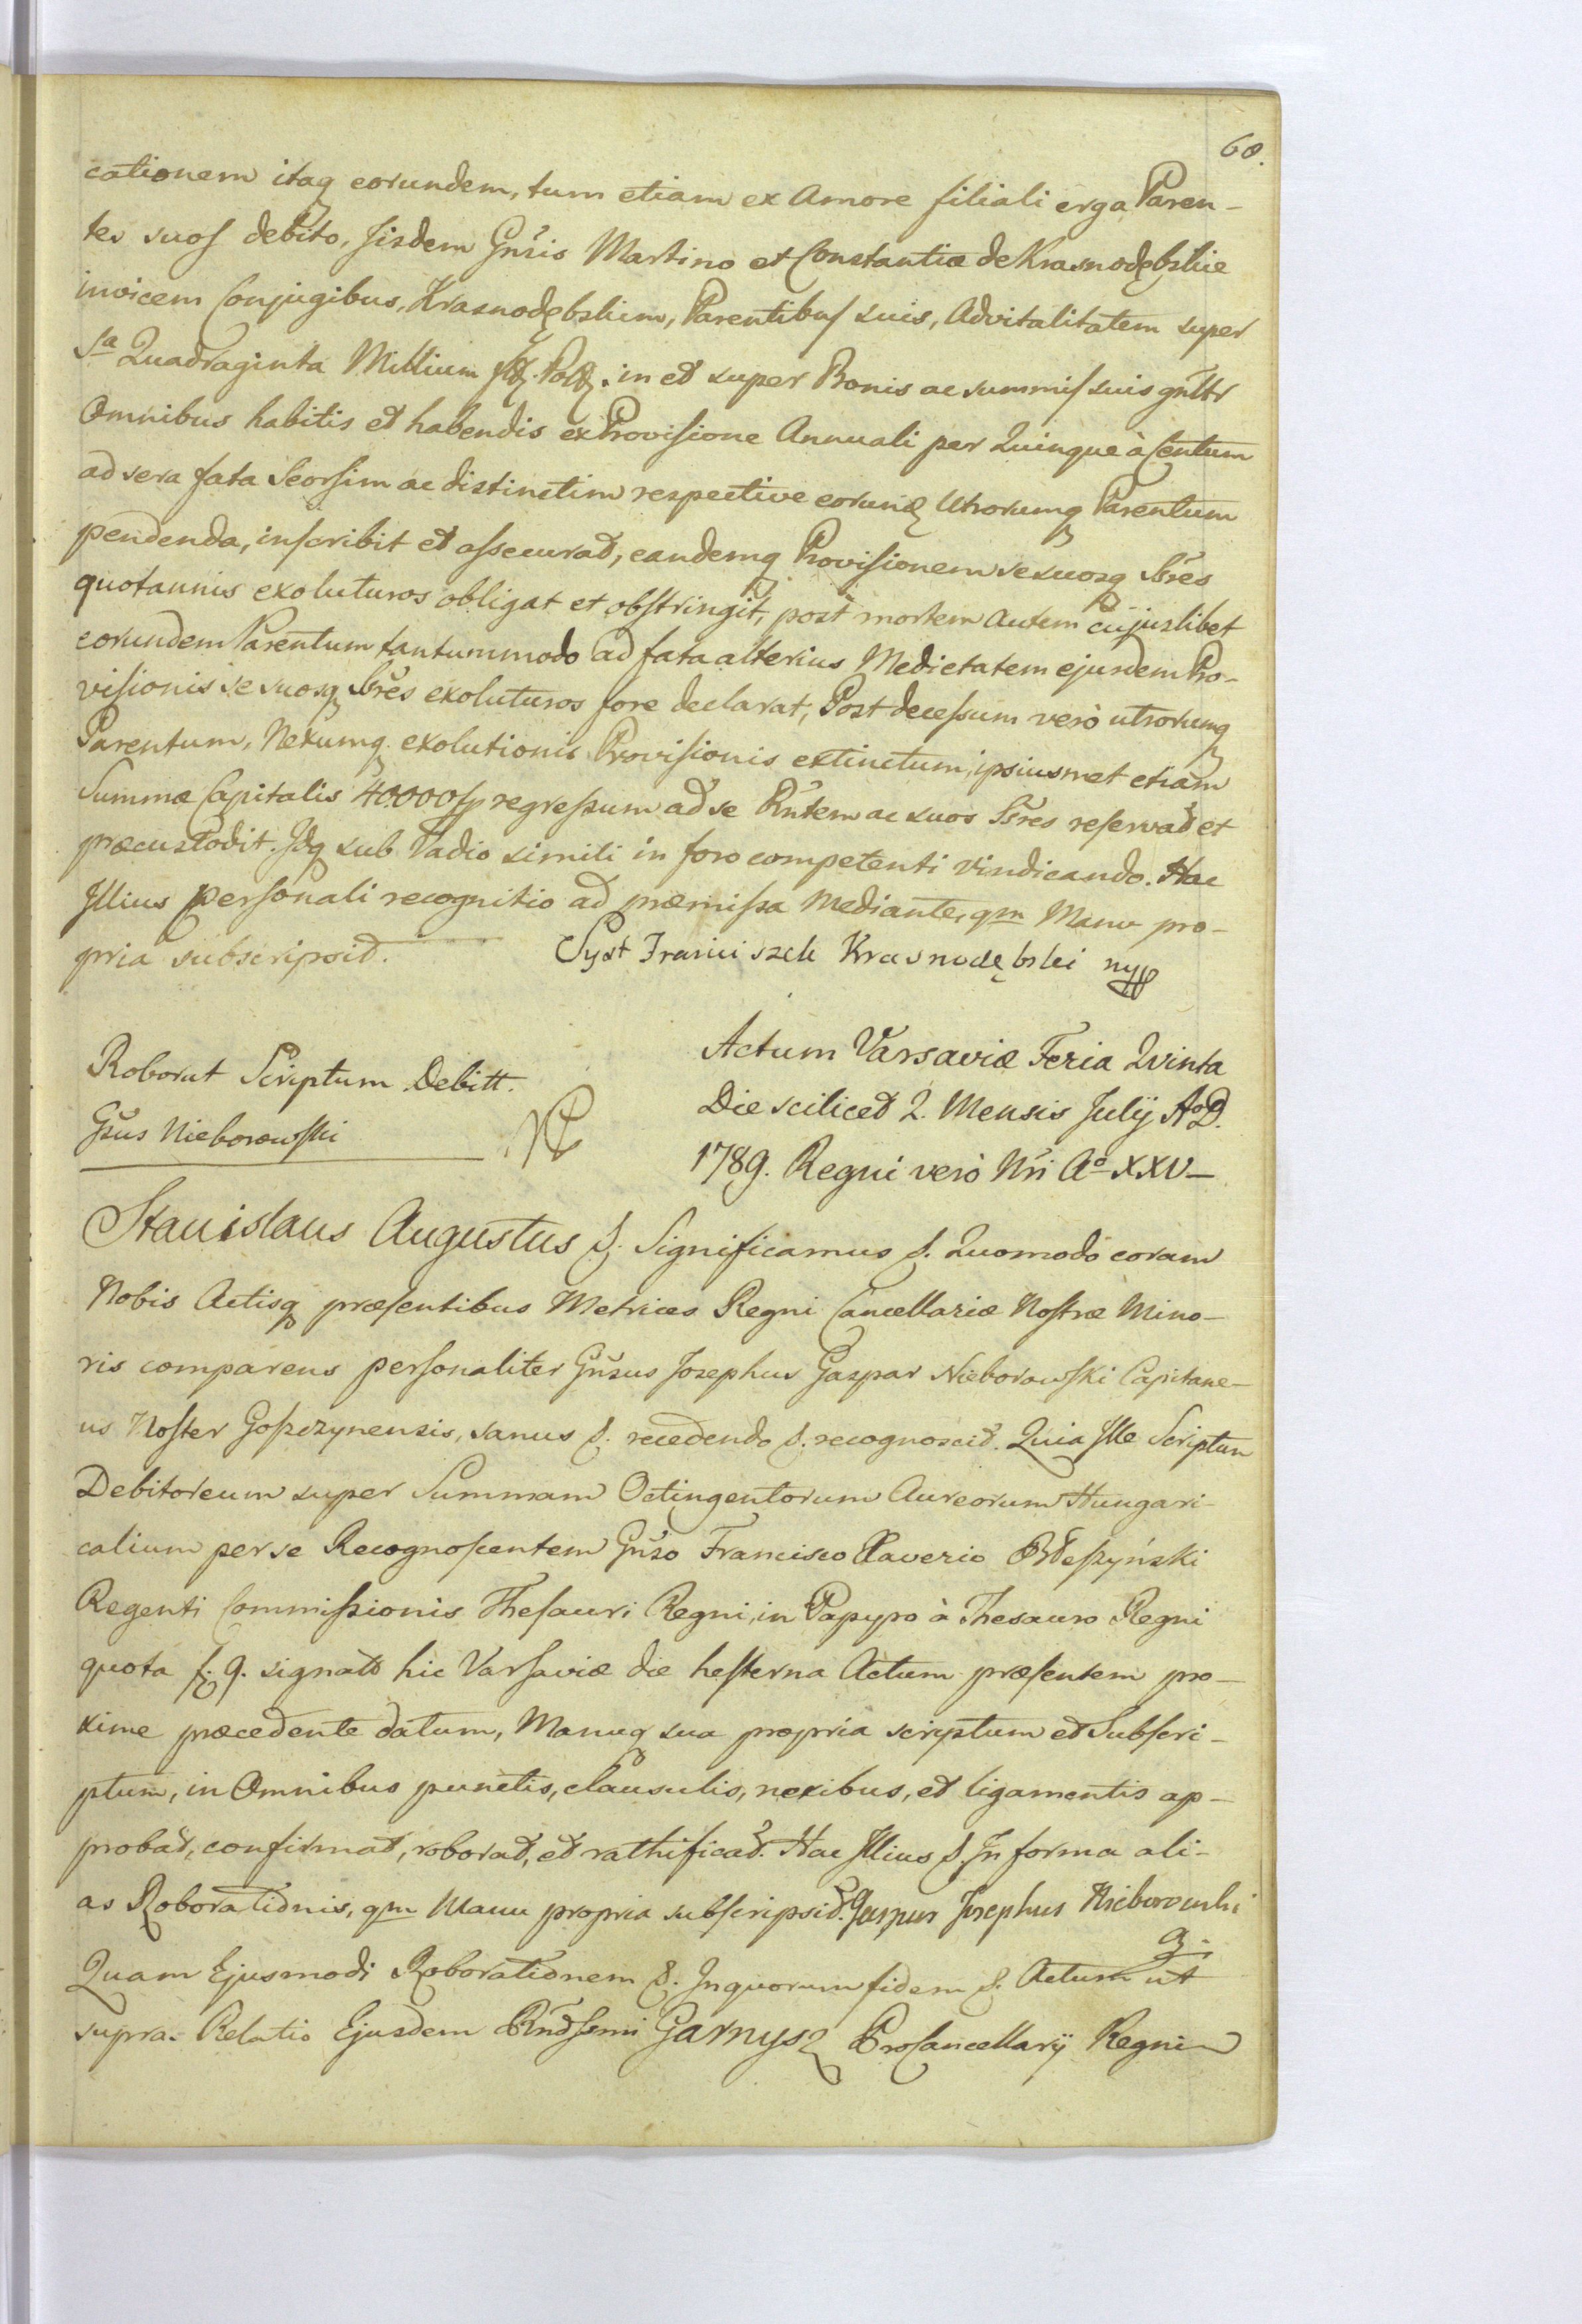 60.
cationem itaq eorundem, tum etiam ex Amore filiali erga Paren-
tes suos debito, Iisdem Gnsis Martino et Constantiæ de Krasnodębskie
invicem Conjugibus, Krasnodębskim, Parentibus suis, Advitalitatem super
Sa Quadraginta Millium flg. Polg. in et super Bonis ac summis suis gnltr
Omnibus habitis et habendis ex Provisione Annuali per Quinque à Centum
ad sera fata Seorsim ac distinctim respective eorund Utrorumq Parentum
pendenda, inscribit et assecurat, eandemq Provisionem se suosq Sšres
quotannis exoluturos obligat et obstringit, post mortem Autem cujuslibet
eorundem Parentum tantummodo ad fata alterius Medietatem ejusdem Pro-
visionis se suosq Sšres exoluturos fore declarat; Post decessum verò utrorumq
Parentum, Nexumq exolutionis Provisionis extinctum, ipsiusmet etiam
Summæ Capitalis 40000 fp regressum ad se Rntem ac suos Sšres reservat et
præcustodit. Idq sub Vadio simili in foro competenti vindicando. Hac
Illius personali recognitio ad præmissa Mediante, qm Manu pro-
pria subscripsit. Syxt Franciszek Krasnodębski mp
Roborat Scriptum Debitt.
Gsus Nieborowski
Actum Varsaviæ Feria Qvinta
Die scilicet 2. Mensis Julij AoD.
1789. Regni verò Nri Ao XXV-
Stanislaus Augustus &. Significamus &. Quomodò coram
Nobis Actisq præsentibus Metrices Regni Cancellariæ Nostræ Mino-
ris comparens personaliter Gnsus Josephus Gaspar Nieborowski Capitane-
us Noster Goszczynensis, sanus &. recedendo &. recognoscit. Quia Ille Scriptum
Debitoreum super Summam Octingentorum Aureorum Hungari-
calium per se Recognoscentem Gnso Francisco Xaverio Błeszyński
Regenti Commissionis Thesauri Regni, in Papyro à Thesauro Regni
quota f. 9. signato hic Varsaviæ die hesterna Actum præsentem pro-
xime præcedente datum, Manuq sua propria scriptum et Subscri-
ptum, in Omnibus punctis, clausulis, nexibus, et ligamentis ap-
probat, confirmat, roborat, et rathificat. Hac Illius &. In forma ali-
as Roborationis, qm Manu propria subscripsit. Gaspar Josephus Nieborowski
Quam Ejusmodi Roborationem &. In quorum fidem &. Actum ut
supra. Relatio Ejusdem Rndssmi Garnysz Procancellarij Regni